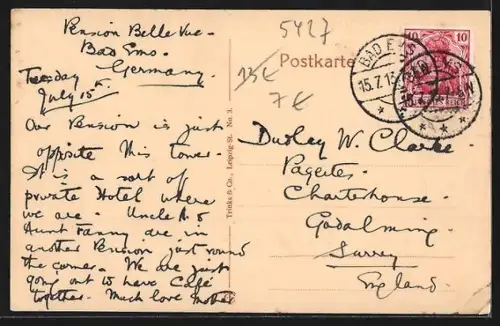 Pension Belle Vue.
Bad Ems.
Germany.
Tuesday
July 15th.
Our Pension is just
opposite this tower.
It is a sort of
private Hotel where
we are. Uncle A. &
Aunt Fanny are in
another Pension just round
the corner. We are just
going out to have Café
together. Much love Mother
Trinks & Co., Leipzig-St. No. 3.
5427
Postkarte
13€
7€
BAD EMS
15.7.13
BAD EMS
10 10
DEUTSCHES REICH
Dudley W. Clarke.
Pageites.
Charterhouse.
Godalming.
Surrey.
England.